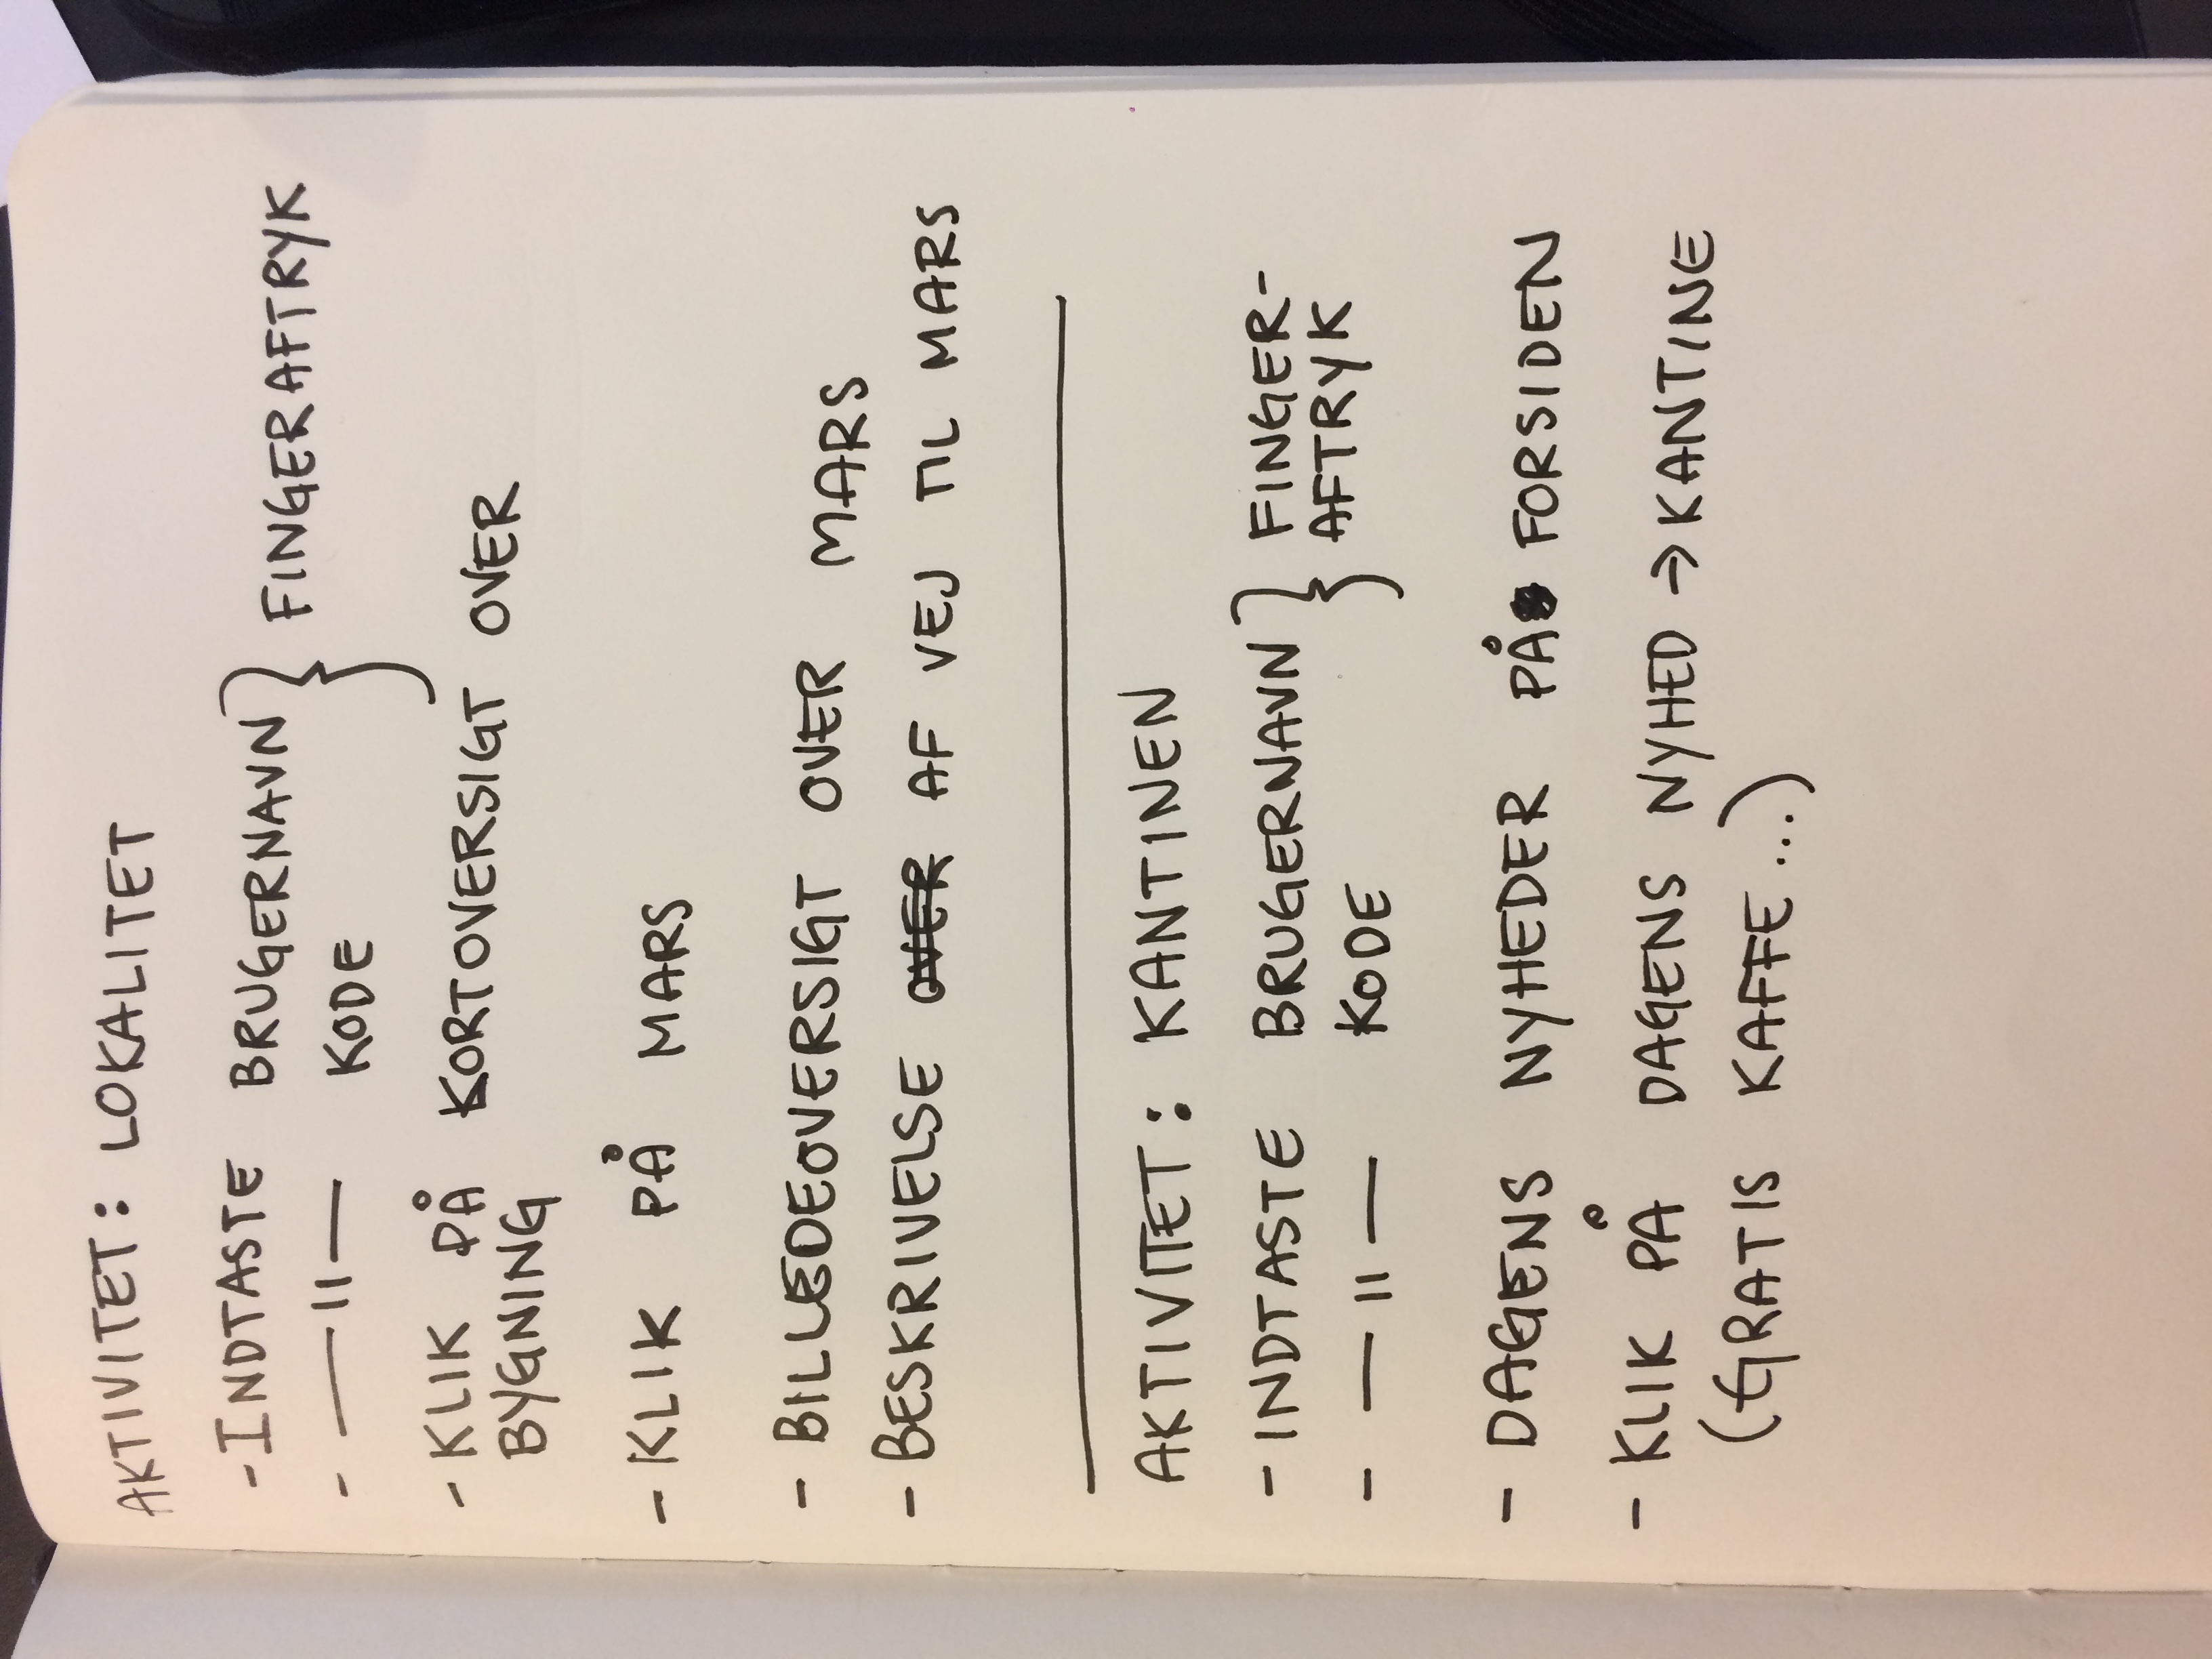 AKTIVITET: LOKALITET
- INDTASTE BRUGERNAVN } FINGERAFTRYK
- — " — KODE
- KLIK PÅ KORTOVERSIGT OVER
BYGNING
- KLIK PÅ MARS
- BILLEDEOVERSIGT OVER MARS
- BESKRIVELSE OVER AF VEJ TIL MARS
AKTIVITET: KANTINEN
- INDTASTE BRUGERNAVN } FINGER-
- — " — KODE AFTRYK
- DAGENS NYHEDER PÅ FORSIDEN
- KLIK PÅ DAGENS NYHED → KANTINE
(GRATIS KAFFE ...)